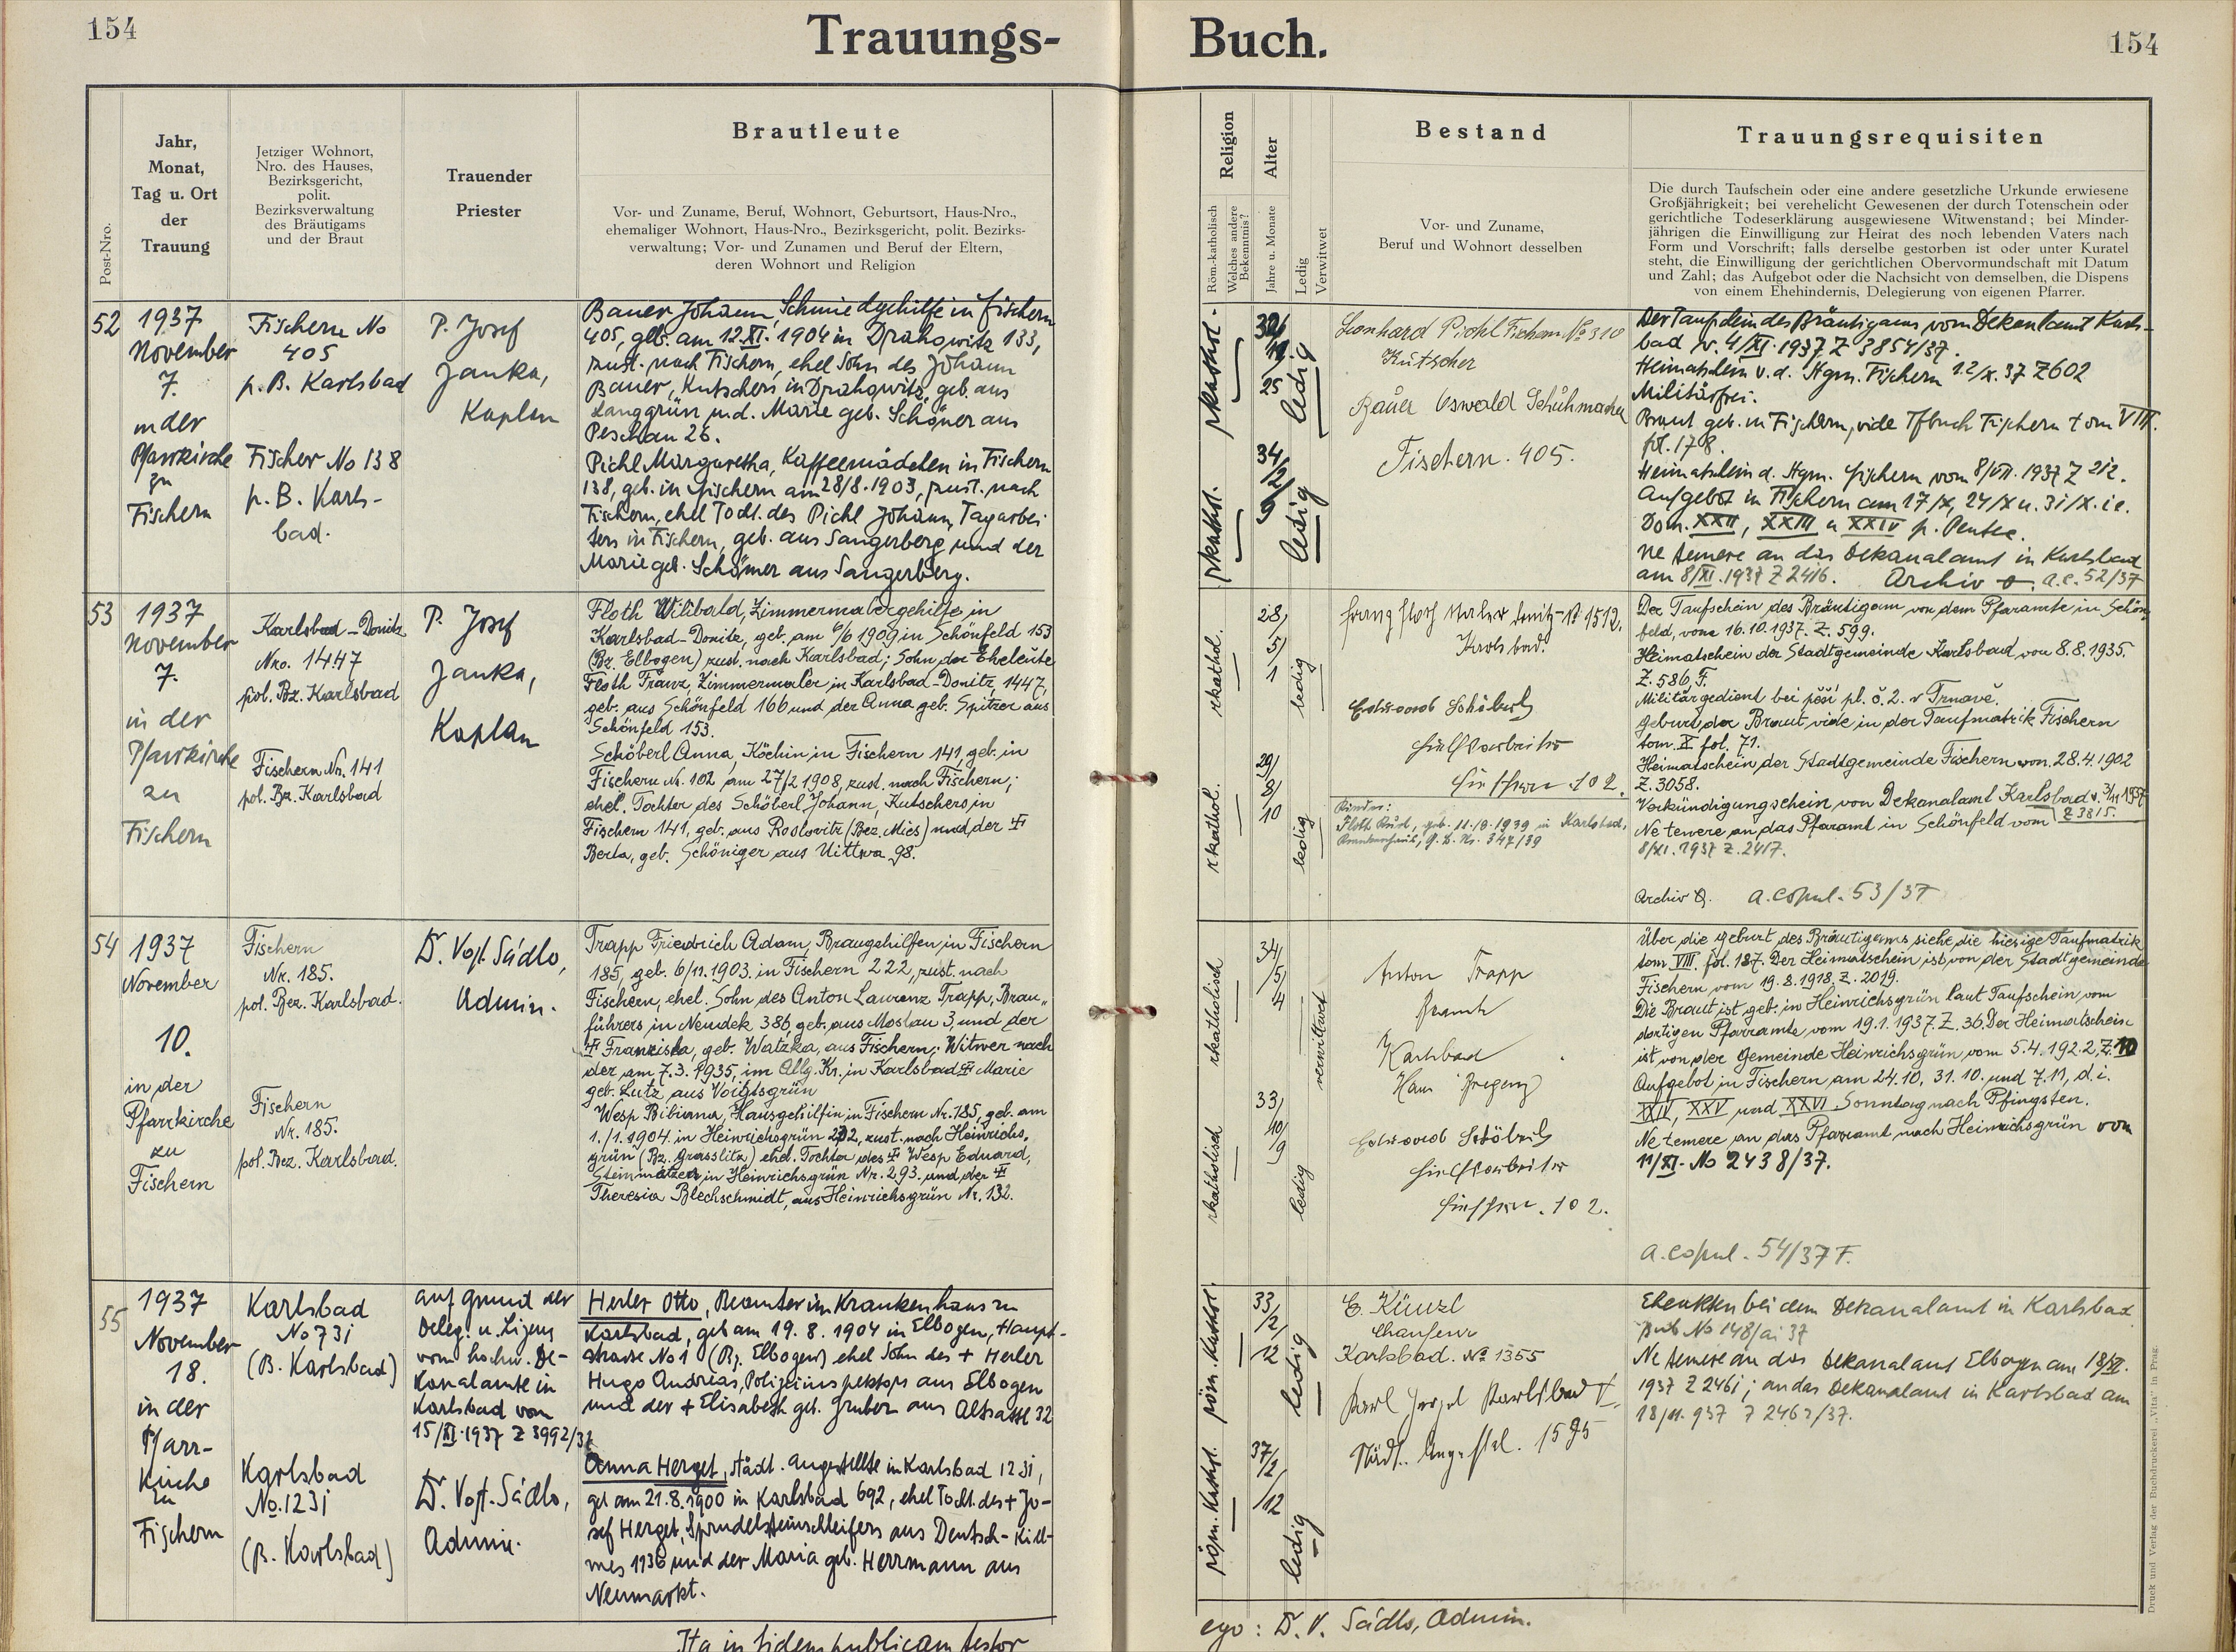 154
Trauungs-
Buch.
154
Post-Nro.
Jahr,
Monat,
Tag u. Ort
der
Trauung
Jetziger Wohnort,
Nro. des Hauses,
Bezirksgericht,
polit.
Bezirksverwaltung
des Bräutigams
und der Braut
Trauender
Priester
Brautleute
Vor- und Zuname, Beruf, Wohnort, Geburtsort, Haus-Nro.,
ehemaliger Wohnort, Haus-Nro., Bezirksgericht, polit. Bezirks-
verwaltung; Vor- und Zunamen und Beruf der Eltern,
deren Wohnort und Religion
Religion
Röm.-katholisch
Welches andere
Bekenntnis?
Alter
Jahre u. Monate
Ledig
Verwitwet
Bestand
Vor- und Zuname,
Beruf und Wohnort desselben
Trauungsrequisiten
Die durch Taufschein oder eine andere gesetzliche Urkunde erwiesene
Großjährigkeit; bei verehelicht Gewesenen der durch Totenschein oder
gerichtliche Todeserklärung ausgewiesene Witwenstand; bei Minder-
jährigen die Einwilligung zur Heirat des noch lebenden Vaters nach
Form und Vorschrift; falls derselbe gestorben ist oder unter Kuratel
steht, die Einwilligung der gerichtlichen Obervormundschaft mit Datum
und Zahl; das Aufgebot oder die Nachsicht von demselben, die Dispens
von einem Ehehindernis, Delegierung von eigenen Pfarrer.
52
1937
November
7.
in der
Pfarrkirche
zu
Fischern
Fischern No
405
p. B. Karlsbad
Fischer No 138
p. B. Karls-
bad.
P. Josef
Janka,
Kaplan
Bauer Johann, Schmiedgehilfe in Fischern
405, geb. am 12.XI.1904 in Drahowitz 133,
zust. nach Fischern, ehel Sohn des Johann
Bauer, Kutschers in Drahowitz, geb. aus
Langgrün u.d. Marie geb. Schöner aus
Peschau 26.
Pichl Margaretha, Kaffeemädchen in Fischern
138, geb. in Fischern am 28/8.1903, zust. nach
Fischern, ehel Tocht. des Pichl Johann, Tagarbei-
ters in Fischern, geb. aus Sangerberg und der
Marie geb. Schöner aus Sangerberg.
rkathol.
ledig
34/
2/
9
rkathol.
ledig
Leonhard Pichl Fischern No 310
Kutscher
Bauer Oswald Schuhmacher
Fischern. 405.
Der Taufschein des Bräutigams vom Dekanlamt Karls-
bad v. 4/XI.1937 Z 3854/37.
Heimatschein v. d. Stgm. Fischern 12/x.37 Z 602
Militärfrei.
Braut geb. in Fischern, vide Tfbuch Fischern tom VIII.
fol. 178.
Heimatschein d. Stgm. Fischern vom 8/VII.1937 Z 212.
Aufgebot in Fischern am 17/x, 24/x u. 31/x. i.e.
Dom. XXII, XXIII u XXIV p. Pentec.
Ne temere an das Dekanalamt in Karlsbad
am 8/XI.1937 Z 2416. Archiv a.c. 52/37
53
1937
November
7.
in der
Pfarrkirche
zu
Fischern
Karlsbad-Donitz
Nro. 1447
pol. Bz. Karlsbad
Fischern Nr. 141
pol. Bz. Karlsbad
P. Josef
Janka,
Kaplan
Floth Wilibald, Zimmermalergehilfe, in
Karlsbad-Donitz, geb. am 6/6 1909 in Schönfeld 153
(Bz. Elbogen) zust. nach Karlsbad; Sohn der Eheleute
Floth Franz, Zimmermaler in Karlsbad-Donitz, 1447,
geb. aus Schönfeld 166 und der Anna geb. Spitzer aus
Schönfeld 153.
Schöberl Anna, Köchin in Fischern 141, geb. in
Fischern Nr. 102 am 27/2 1908, zust. nach Fischern;
ehel. Tochter des Schöberl Johann, Kutschers in
Fischern 141, geb. aus Roslovitz (Bez. Mies) und der ✠
Berta, geb. Schöniger aus Uittwa 98.
28/
5/
1
rkathol.
ledig
29/
8/
10
rkathol.
ledig
Franz Floth Maler Donitz No 1512.
Karlsbad.
Eduard Schöberl
Hilfsarbeiter
Fischern 102.
Kinder:
Floth Kurt, geb. 11.9.1939 in Karlsbad,
Krankenhaus, G. B. Nr. 347/39
Der Taufschein des Bräutigam von dem Pfaramte in Schön-
feld, vom 16.10.1937. Z. 599.
Heimatschein der Stadtgemeinde Karlsbad von 8.8.1935.
Z. 586 F.
Militärgedient bei pěší pl. č. 2. v Trnavě.
Geburt der Braut, vide in der Taufmatrik Fischern
tom. X fol. 71.
Heimatschein der Stadtgemeinde Fischern von 28.4.1902
Z. 3058.
Verkündigungschein von Dekanalamt Karlsbad v. 3/11 1937
Z 3815.
Ne temere an das Pfaramt in Schönfeld vom
8/XI.1937 Z. 2417.
Archiv a. copul. 53/37
54
1937
November
10.
in der
Pfarrkirche
zu
Fischern
Fischern
Nr. 185.
pol. Bez. Karlsbad.
Fischern
Nr. 185.
pol. Bez. Karlsbad.
D. Vojt. Sádlo,
Admin.
Trapp Friedrich Adam, Braugehilfen, in Fischern
185, geb. 6/11.1903. in Fischern 222, zust. nach
Fischern, ehel. Sohn des Anton Laurenz Trapp, Brau-
führers in Neudek 386, geb. aus Mostau 3, und der
✠ Franziska, geb. Watzka, aus Fischern; Witwer nach
der am 7.3.1935, im Allg. Kr. in Karlsbad ✠ Marie
geb. Lutz, aus Voigtsgrün
Wesp Bibiana, Hausgehilfin in Fischern Nr. 185, geb. am
1./1.1904. in Heinrichsgrün 202, zust. nach Heinrichs-
grün (Bz. Grasslitz) ehel. Tochter des ✠ Wesp Eduard,
Steinmetzers in Heinrichsgrün Nr. 293. und der ✠
Theresia Blechschmidt, aus Heinrichsgrün Nr. 132.
34/
5/
4
rkatholisch
verwittwet
33/
10/
9
rkatholisch
ledig
Anton Trapp
Beamte
Karlsbad
Hans
Eduard Schöberl
Hilfsarbeiter
Fischern. 102.
Über die Geburt des Bräutigams siehe die hiesige Taufmatrik
tom. VIII. fol. 187. Der Heimatschein ist von der Stadtgemeinde
Fischern vom 19.8.1918, Z. 2019.
Die Braut ist geb. in Heinrichsgrün laut Taufschein vom
dortigen Pfarramte vom 19.1.1937. Z. 36. Der Heimatschein
ist von der Gemeinde Heinrichsgrün vom 5.4.1922, Z. 10
Aufgebot in Fischern am 24.10, 31.10. und 7.11, d.i.
XXIV, XXV und XXVI Sonntag nach Pfingsten.
Ne temere an das Pfaramt nach Heinrichsgrün vom
11/XI. No 2438/37.
a. copul. 54/37 F.
55
1937
November
18.
in der
Pfarr-
kirche
zu
Fischern
Karlsbad
No 731
(B. Karlsbad)
Karlsbad
No. 1231
(B. Karlsbad)
auf grund der
Deleg. u. Lizenz
vom hochw. De-
kanalamte in
Karlsbad vom
15/XI.1937 Z 3992/37
D. Vojt. Sádlo,
Admin.
Herler Otto, Beamter im Krankenhaus zu
Karlsbad, geb am 19.8.1904 in Elbogen, Haupt-
strasse No 1 (Bz. Elbogen) ehel Sohn des + Herler
Hugo Andreas, Polizeiinspektors aus Elbogen
und der + Elisabeth geb. Gruber aus Altsattl 32
Anna Herget, städt. Angestellte in Karlsbad 1231,
geb am 21.8.1900 in Karlsbad 692, ehel Tocht. des + Jo-
sef Herget, Sprudelsteinschleifers aus Deutsch-Kill-
mes 1136 und der Maria geb. Herrmann aus
Neumarkt.
33/
2/
12
röm. kathol.
ledig
37/
2/
12
röm. kathol.
ledig
E. Künzl
Chaufeur
Karlsbad. No 1355
Karl Karlsbad
Städt. Angestel. 1595
Eheakten bei dem Dekanalamt in Karlsbad
sub No 148/ai 37
Ne temere an das Dekanalamt Elbogen am 18/XI.
1937 Z 2461; an das Dekanalamt in Karlsbad am
18/11.937 Z 2462/37.
Ita in fidem publicam testor
ego: D. V. Sádlo, Admin.
Druck und Verlag der Buchdruckerei „Vita" in Prag.